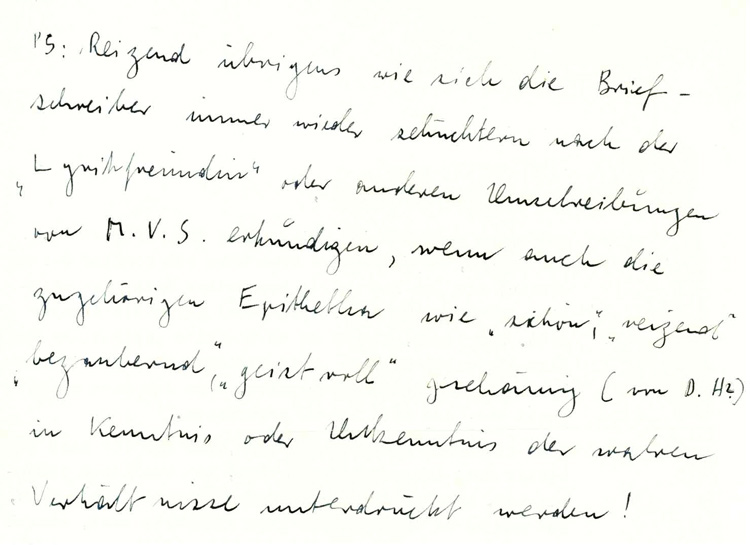 PS: Reizend übrigens wie sich die Brief-
schreiber immer wieder schüchtern nach der
„Lyrikfreundin“ oder anderen Umschreibungen
von M.V.S. erkundigen, wenn auch die
zugehörigen Epithetha wie „schön“, „reizend“
„bezaubernd“, „geistvoll“ (von D. Hz.)
in Kenntnis oder Unkenntnis der wahren
Verhältnisse unterdrückt werden!